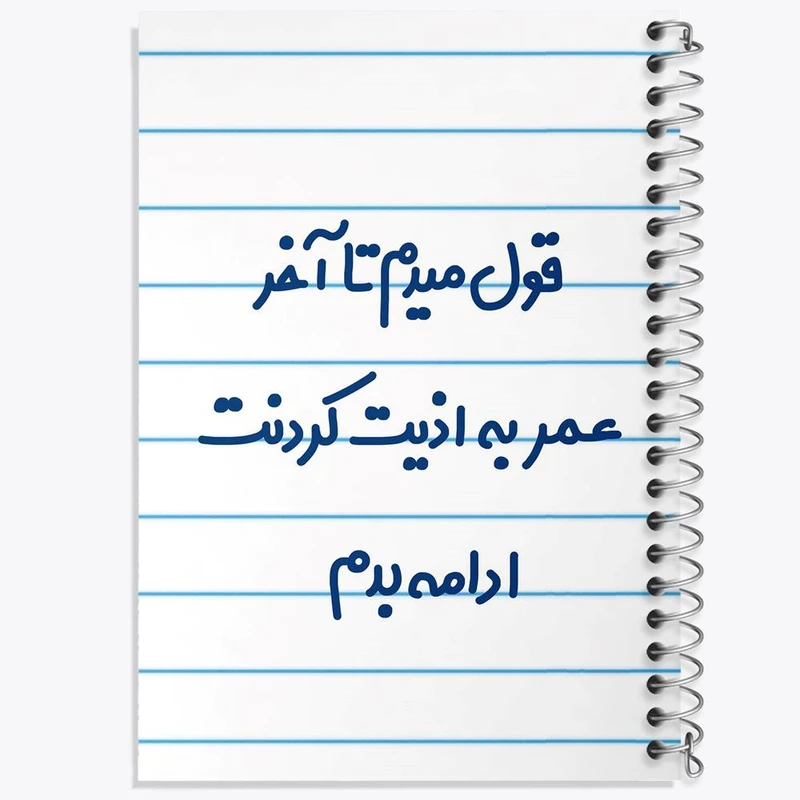 قول میدم تا آخر
عمر به اذیت کردنت
ادامه بدم